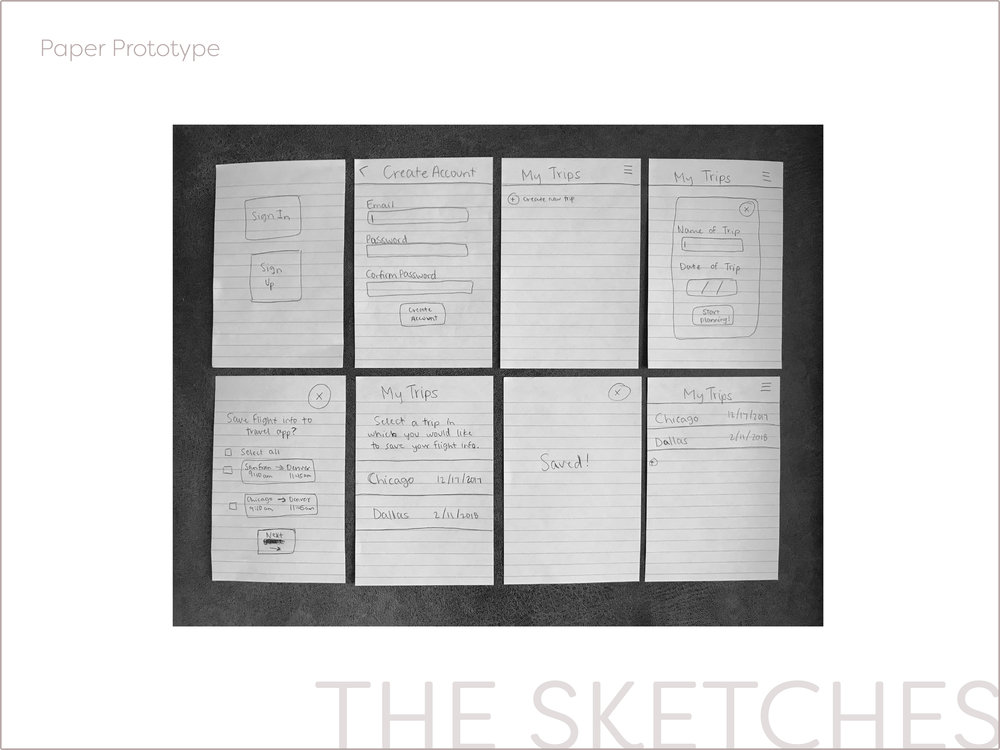 Paper Prototype
Sign In
Sign
Up
Create Account
Email
Password
Confirm Password
Create
Account
My Trips
Create new trip
My Trips
Name of Trip
Date of Trip
/ /
Start
planning!
Save flight info to
travel app?
Select all
→ Denver
9:40am 11:45am
Chicago → Denver
9:40am 11:45am
Next
→
My Trips
Select a trip in
which you would like
to save your flight info.
Chicago 12/17/2017
Dallas 2/11/2018
Saved!
My Trips
Chicago 12/17/2017
Dallas 2/11/2018
THE SKETCHES